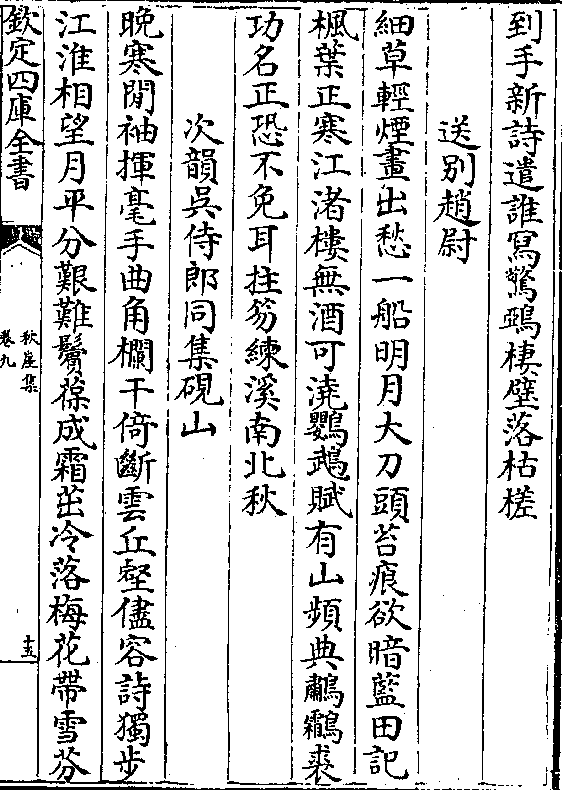 到手新詩遣誰寫驚鵶棲壁落枯槎
送別趙尉
細草輕煙畫出愁一船明月大刀頭苔痕欲暗藍田記
楓葉正寒江渚樓無酒可澆鸚鵡賦有山頻典鷫鸘裘
功名正恐不免耳拄笏練溪南北秋
次韻吳侍郎同集硯山
晚寒閒袖揮毫手曲角欄干倚斷雲丘壑儘容詩獨步
江淮相望月平分艱難鬢葆成霜茁冷落梅花帶雪芬
欽定四庫全書
秋崖集
卷九
十五